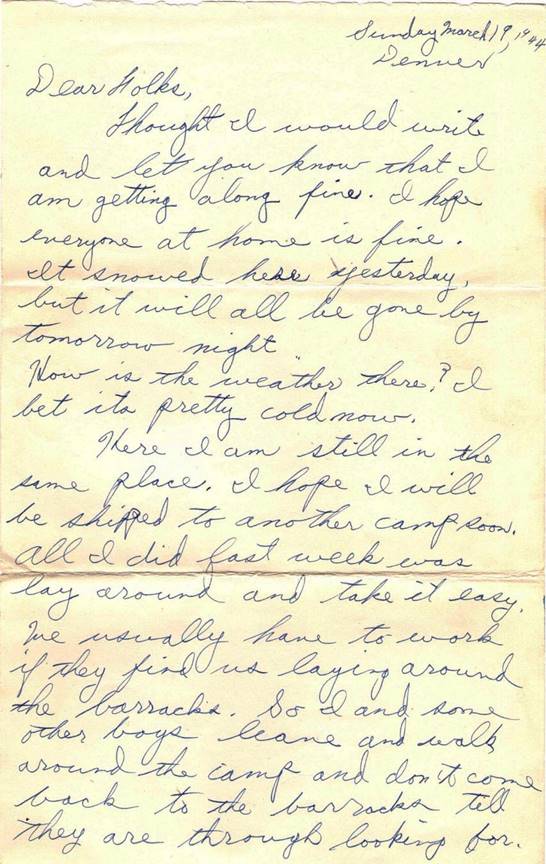 Sunday March 19, 1944
Denver
Dear Folks,
Thought I would write
and let you know that I
am getting along fine. I hope
everyone at home is fine.
It snowed here yesterday,
but it will all be gone by
tomorrow night
How is the weather there? I
bet its pretty cold now.
Here I am still in the
same place. I hope I will
be shipped to another camp soon.
All I did last week was
lay around and take it easy.
We usually have to work
if they find us laying around
the barracks. So I and some
other boys leave and walk
around the camp and don't come
back to the barracks till
they are through looking for.